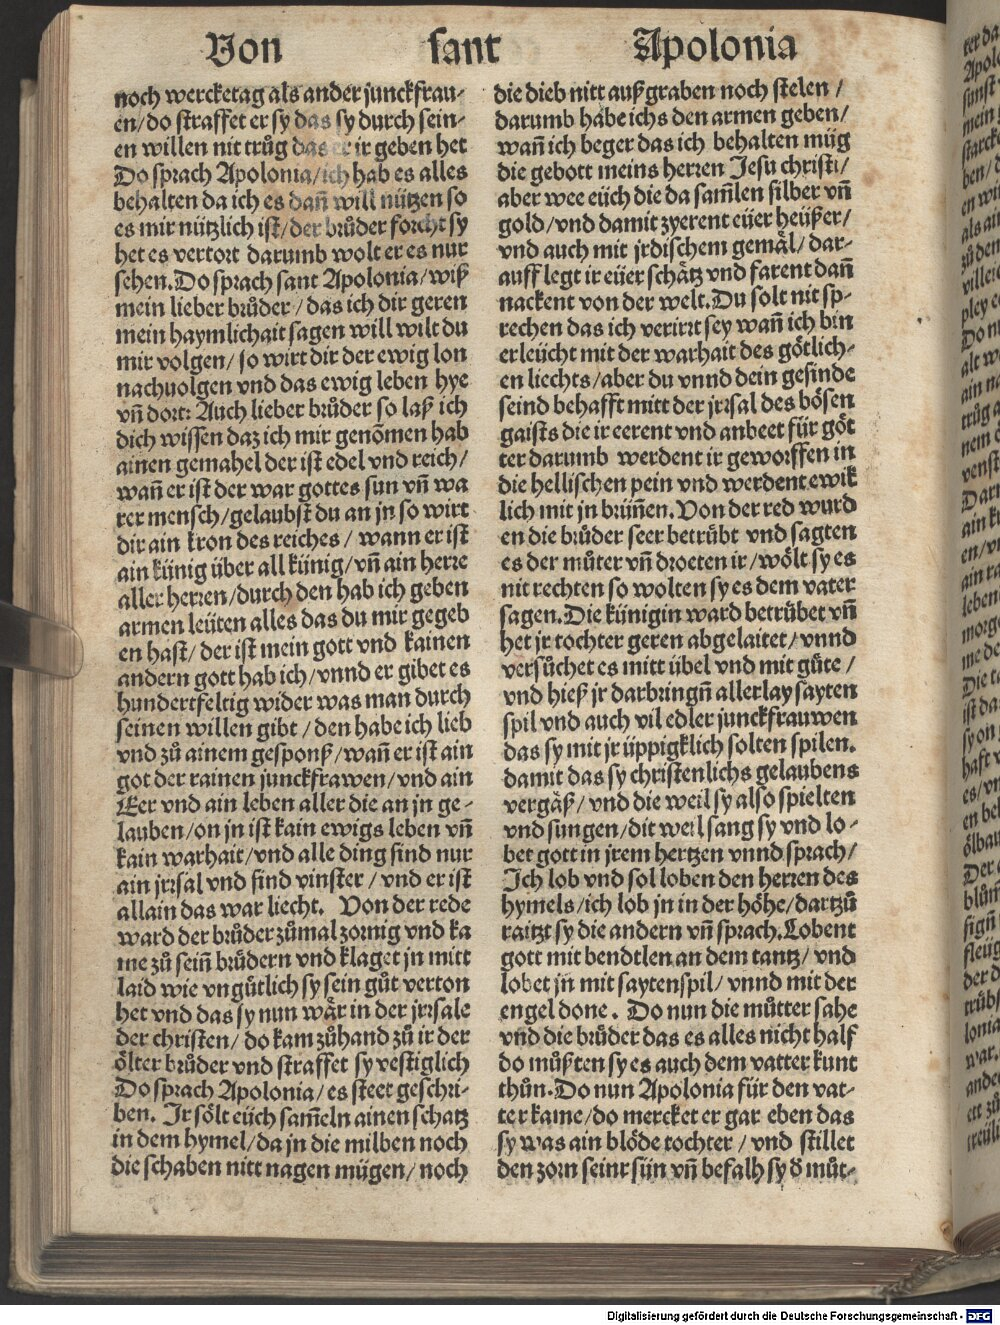 Von sant Apolonia
noch wercketag als ander junckfrau-
en/do straffet er sy das sy durch sein-
en willen nit trůg das er ir geben het
Do sprach Apolonia/ich hab es alles
behalten da ich es dañ will nützen so
es mir nützlich ist/der brůder forcht sy
het es vertort darumb wolt er es nur
sehen.Do sprach sant Apolonia/wiß
mein lieber brůder/das ich dir geren
mein haymlichait sagen will wilt du
mir volgen/so wirt dir der ewig lon
nachuolgen vnd das ewig leben hye
vñ dort: Auch lieber brůder so laß ich
dich wissen daz ich mir genõmen hab
ainen gemahel der ist edel vnd reich/
wañ er ist der war gottes sun vñ wa
rer mensch/gelaubst du an jn so wirt
dir ain kron des reiches/wann er ist
ain künig über all künig/vñ ain herre
aller herren/durch den hab ich geben
armen leüten alles das du mir gegeb
en hast/der ist mein gott vnd kainen
andern gott hab ich/vnnd er gibet es
hundertfeltig wider was man durch
seinen willen gibt/den habe ich lieb
vnd zů ainem gesponß/wañ er ist ain
got der rainen junckfrawen/vnd ain
Eer vnd ain leben aller die an jn ge-
lauben/on jn ist kain ewigs leben vñ
kain warhait/vnd alle ding sind nur
ain jrrsal vnd sind vinster/vnd er ist
allain das war liecht. Von der rede
ward der brůder zůmal zornig vnd ka
me zů seiñ brůdern vnd klaget jn mitt
laid wie vngůtlich sy sein gůt verton
het vnd das sy nun wär in der jrrsale
der christen/do kam zůhand zů ir der
ölter brůder vnd straffet sy vestiglich
Do sprach Apolonia/es steet geschri-
ben. Ir sölt eüch sam̃eln ainen schatz
in dem hymel/da jn die milben noch
die schaben nitt nagen mügen/noch
die dieb nitt außgraben noch stelen/
darumb habe ichs den armen geben/
wañ ich beger das ich behalten müg
die gebott meins herren Jesu christi/
aber wee eüch die da sam̃len silber vñ
gold/vnd damit zyerent eüer heüßer/
vnd auch mit jrdischem gemäl/dar-
auff legt ir eüer schätz vnd farent dañ
nackent von der welt.Du solt nit sp-
rechen das ich verirrt sey wañ ich bin
erleücht mit der warhait des götlich-
en liechts/aber du vnnd dein gesinde
seind behafft mitt der jrrsal des bösen
gaists die ir eerent vnd anbeet für göt
ter darumb werdent ir geworffen in
die hellischen pein vnd werdent ewik
lich mit jn brüñen.Von der red wurd
en die brůder seer betrübt vnd sagten
es der můter vñ droeten ir/wölt sy es
nit rechten so wolten sy es dem vater
sagen.Die künigin ward betrübet vñ
het jr tochter geren abgelaitet/vnnd
versůchet es mitt übel vnd mit güte/
vnd hieß jr darbringñ allerlay sayten
spil vnd auch vil edler junckfrauwen
das sy mit jr üppigklich solten spilen.
damit das sy christenlichs gelaubens
vergäß/vnd die weil sy also spielten
vnd sungen/dit weil sang sy vnd lo-
bet gott in jrem hertzen vnnd sprach/
Ich lob vnd sol loben den herren des
hymels/ich lob jn in der höhe/dartzů
raitzt sy die andern vñ sprach.Lobent
gott mit bendtlen an dem tantz/vnd
lobet jn mit saytenspil/vnnd mit der
engel done. Do nun die můtter sahe
vnd die brůder das es alles nicht half
do můßten sy es auch dem vatter kunt
thůn.Do nun Apolonia für den vat-
ter kame/do mercket er gar eben das
sy was ain blöde tochter/vnd stillet
den zorn seinr sün vñ befalh sy d̕ můt-
Digitalisierung gefördert durch die Deutsche Forschungsgemeinschaft - DFG